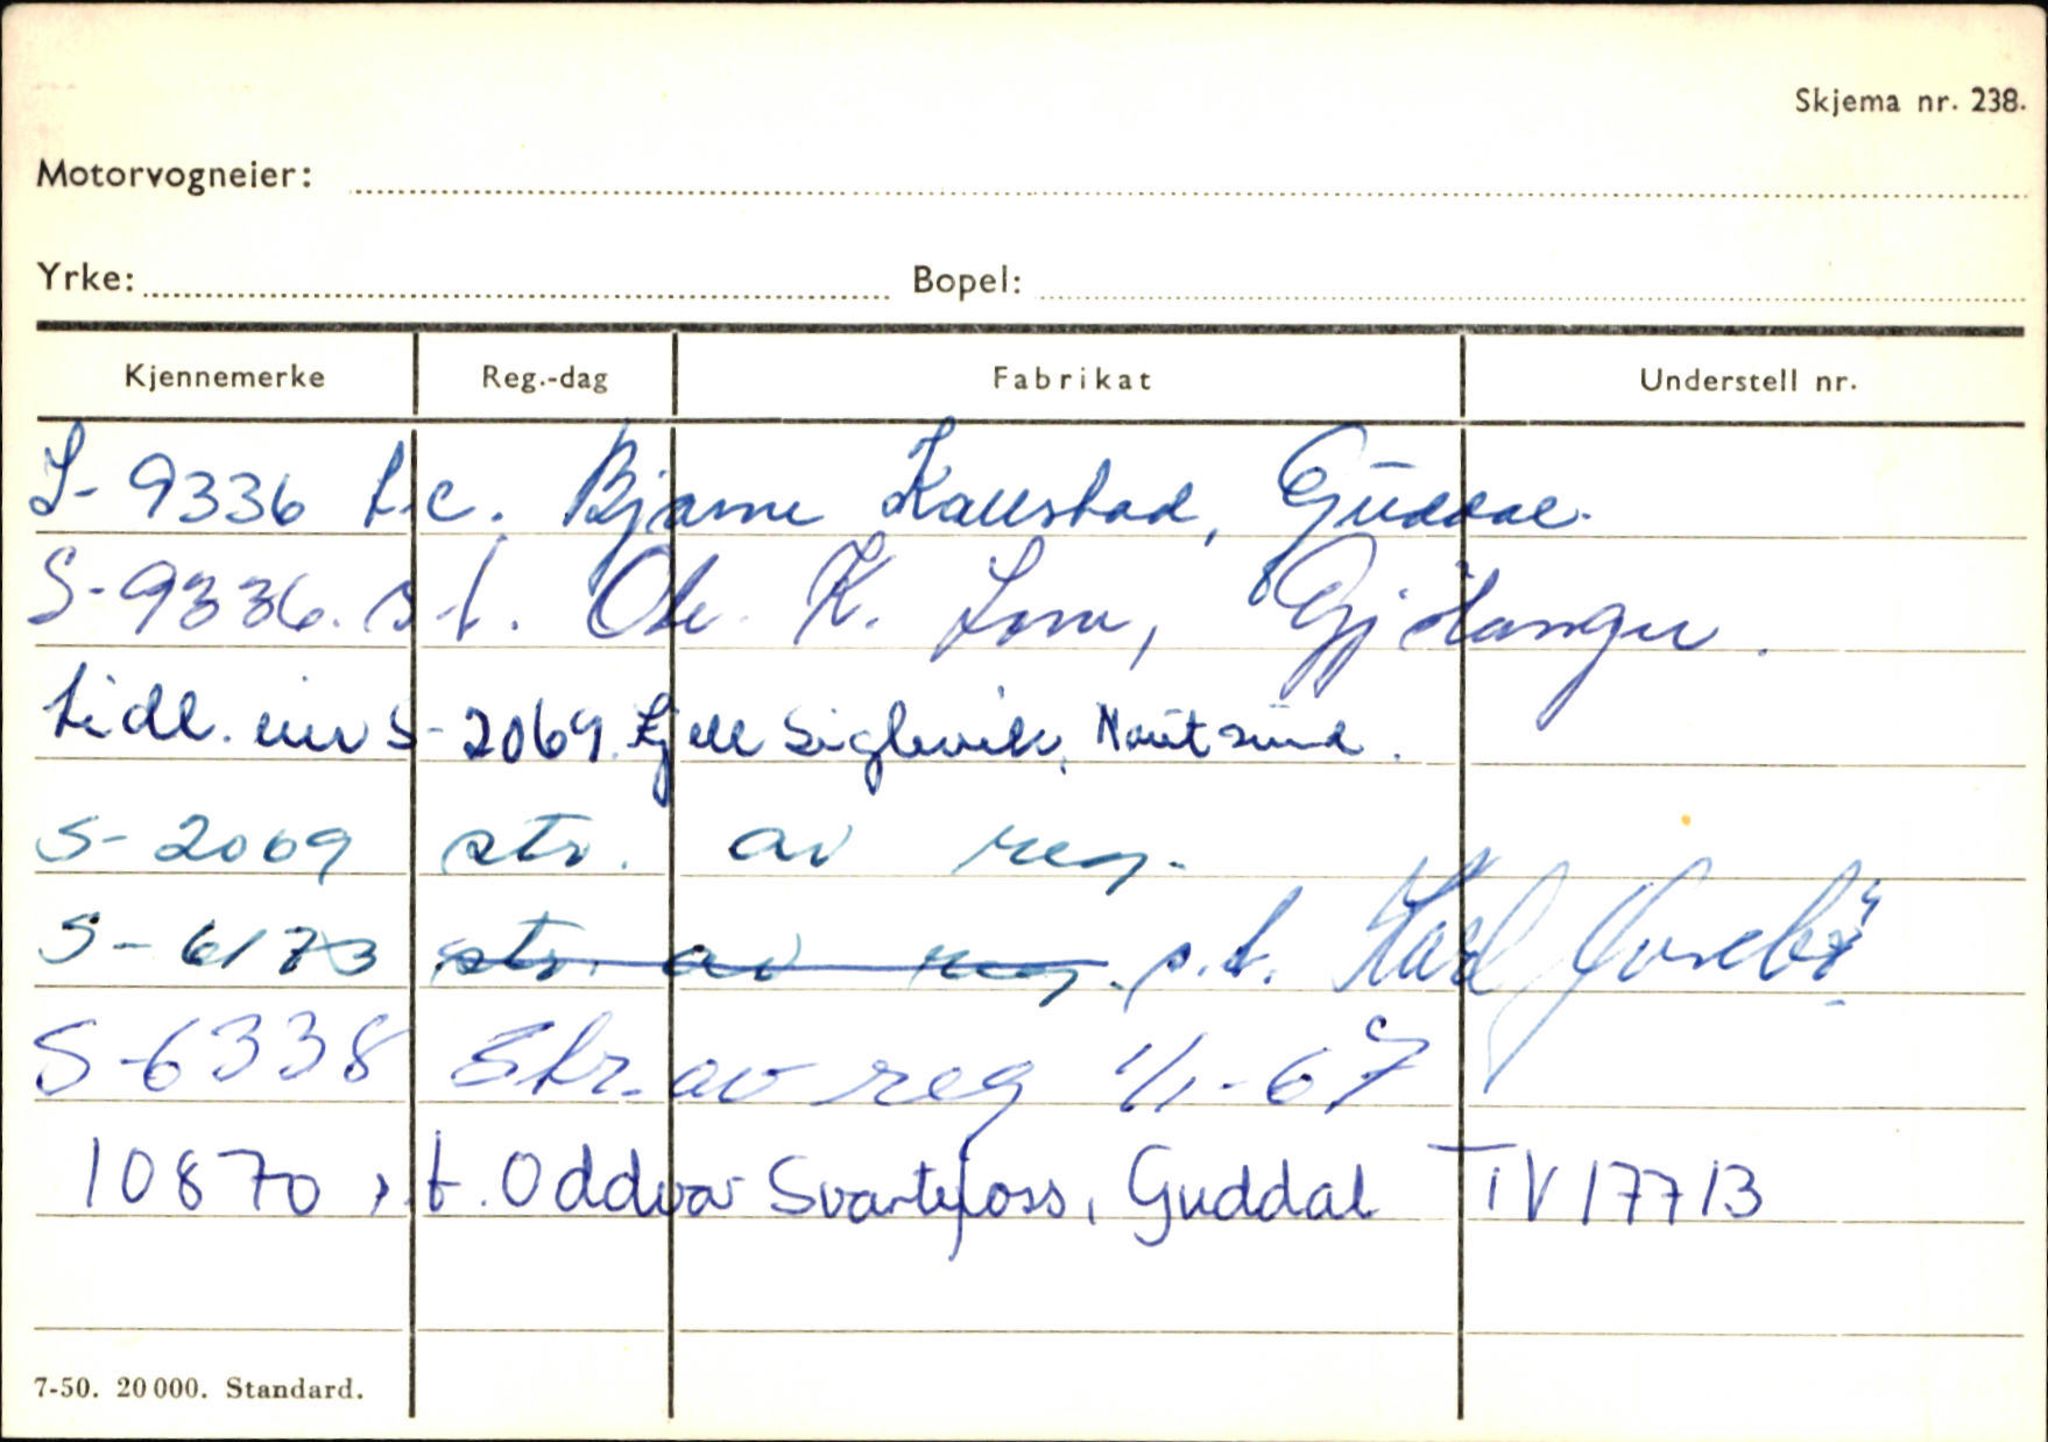 Skjema nr. 238.
Motorvogneier:
Yrke: Bopel:
Kjennemerke Reg.-dag Fabrikat Understell nr.
S-9336 t.c. Bjarne Kallstad, Guddal.
S-9336. s.t. Ole K. Lom, Gjölanger.
tidl. eier S-2069. Kjell Siglevik, Nautsund.
S-2069 str. av reg.
S-6173 str. av reg. s.t. Karl
S-6338 Str. av reg 1/1-67
10870 s.t. Oddvar Svartefoss, Guddal TV17713
7-50. 20 000. Standard.